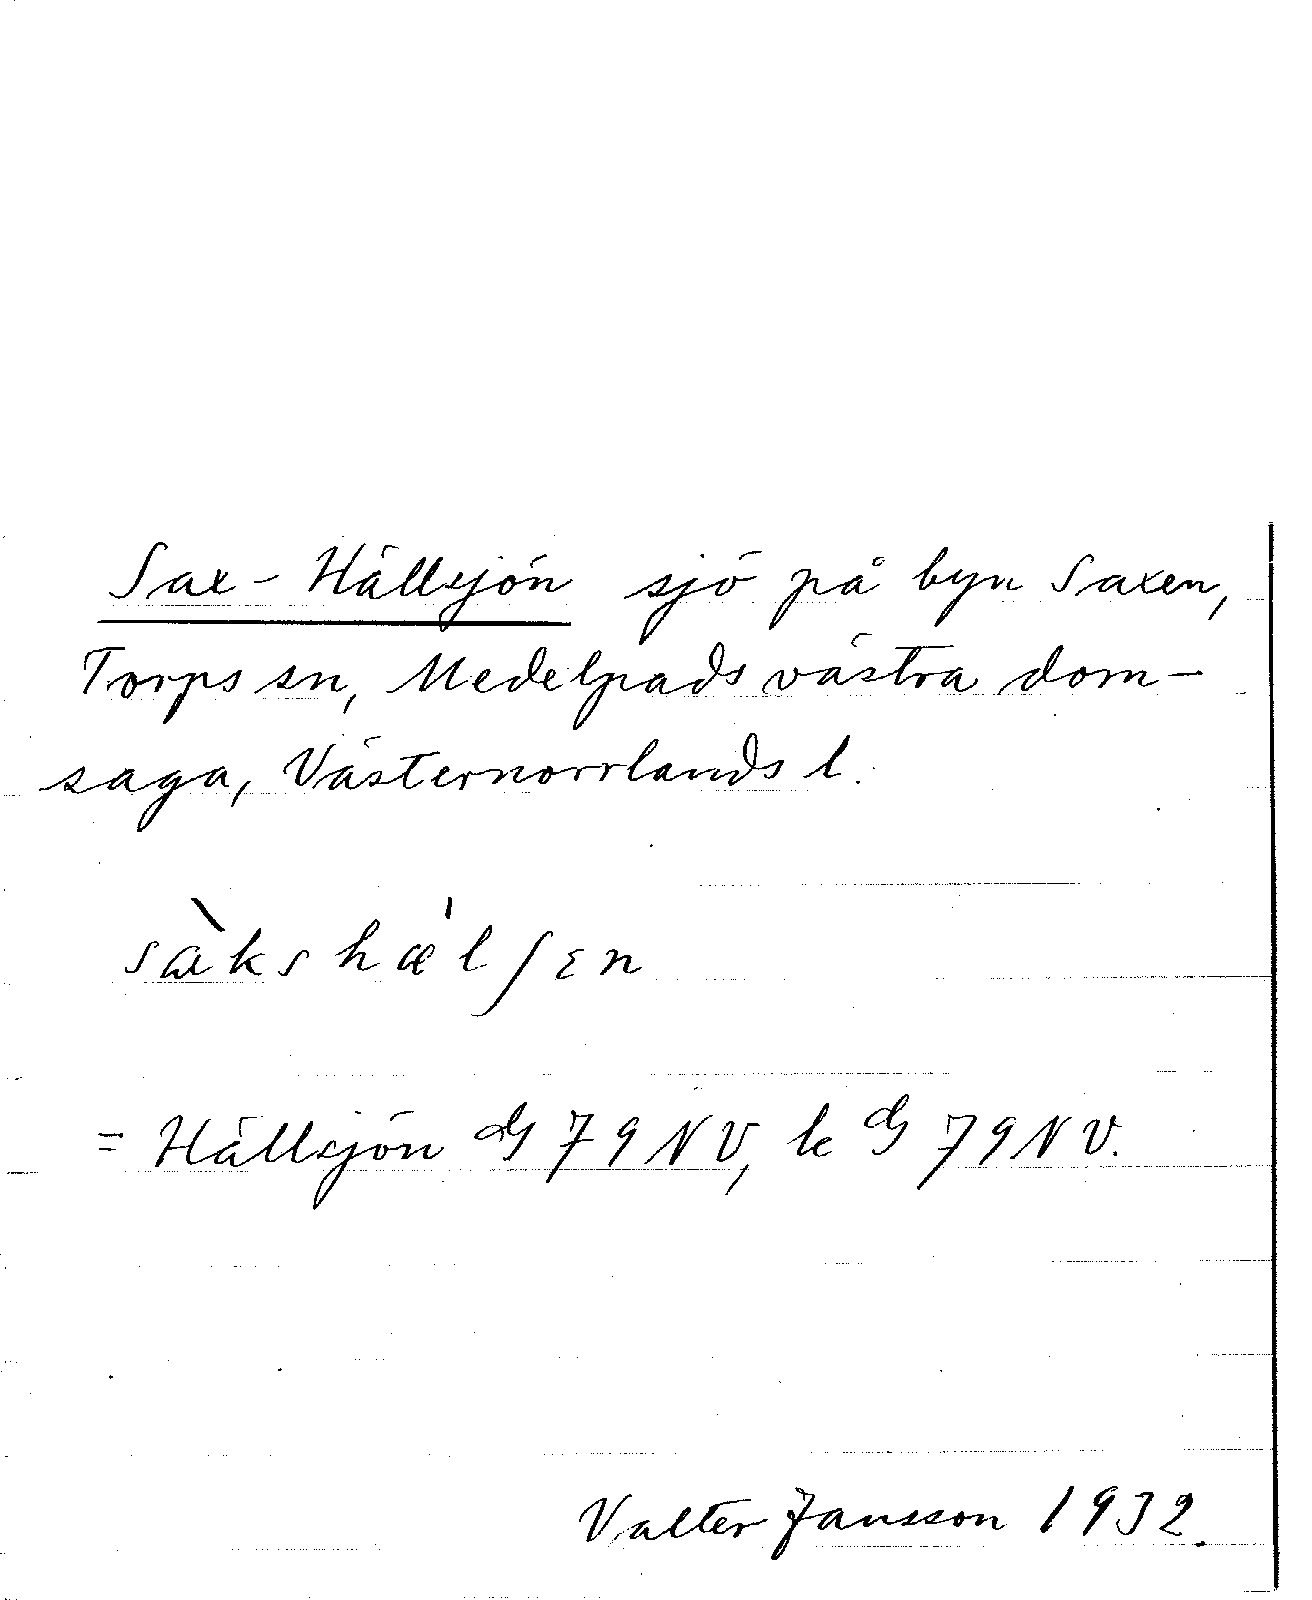 Sax-Hällsjön sjö på byn Saxen,
Torps sn, Medelpads västra dom-
saga, Västernorrlands l.
sàkshæ'lʃɛn
= Hällsjön G 79 NV, k G 79 NV.
Valter Jansson 1932.